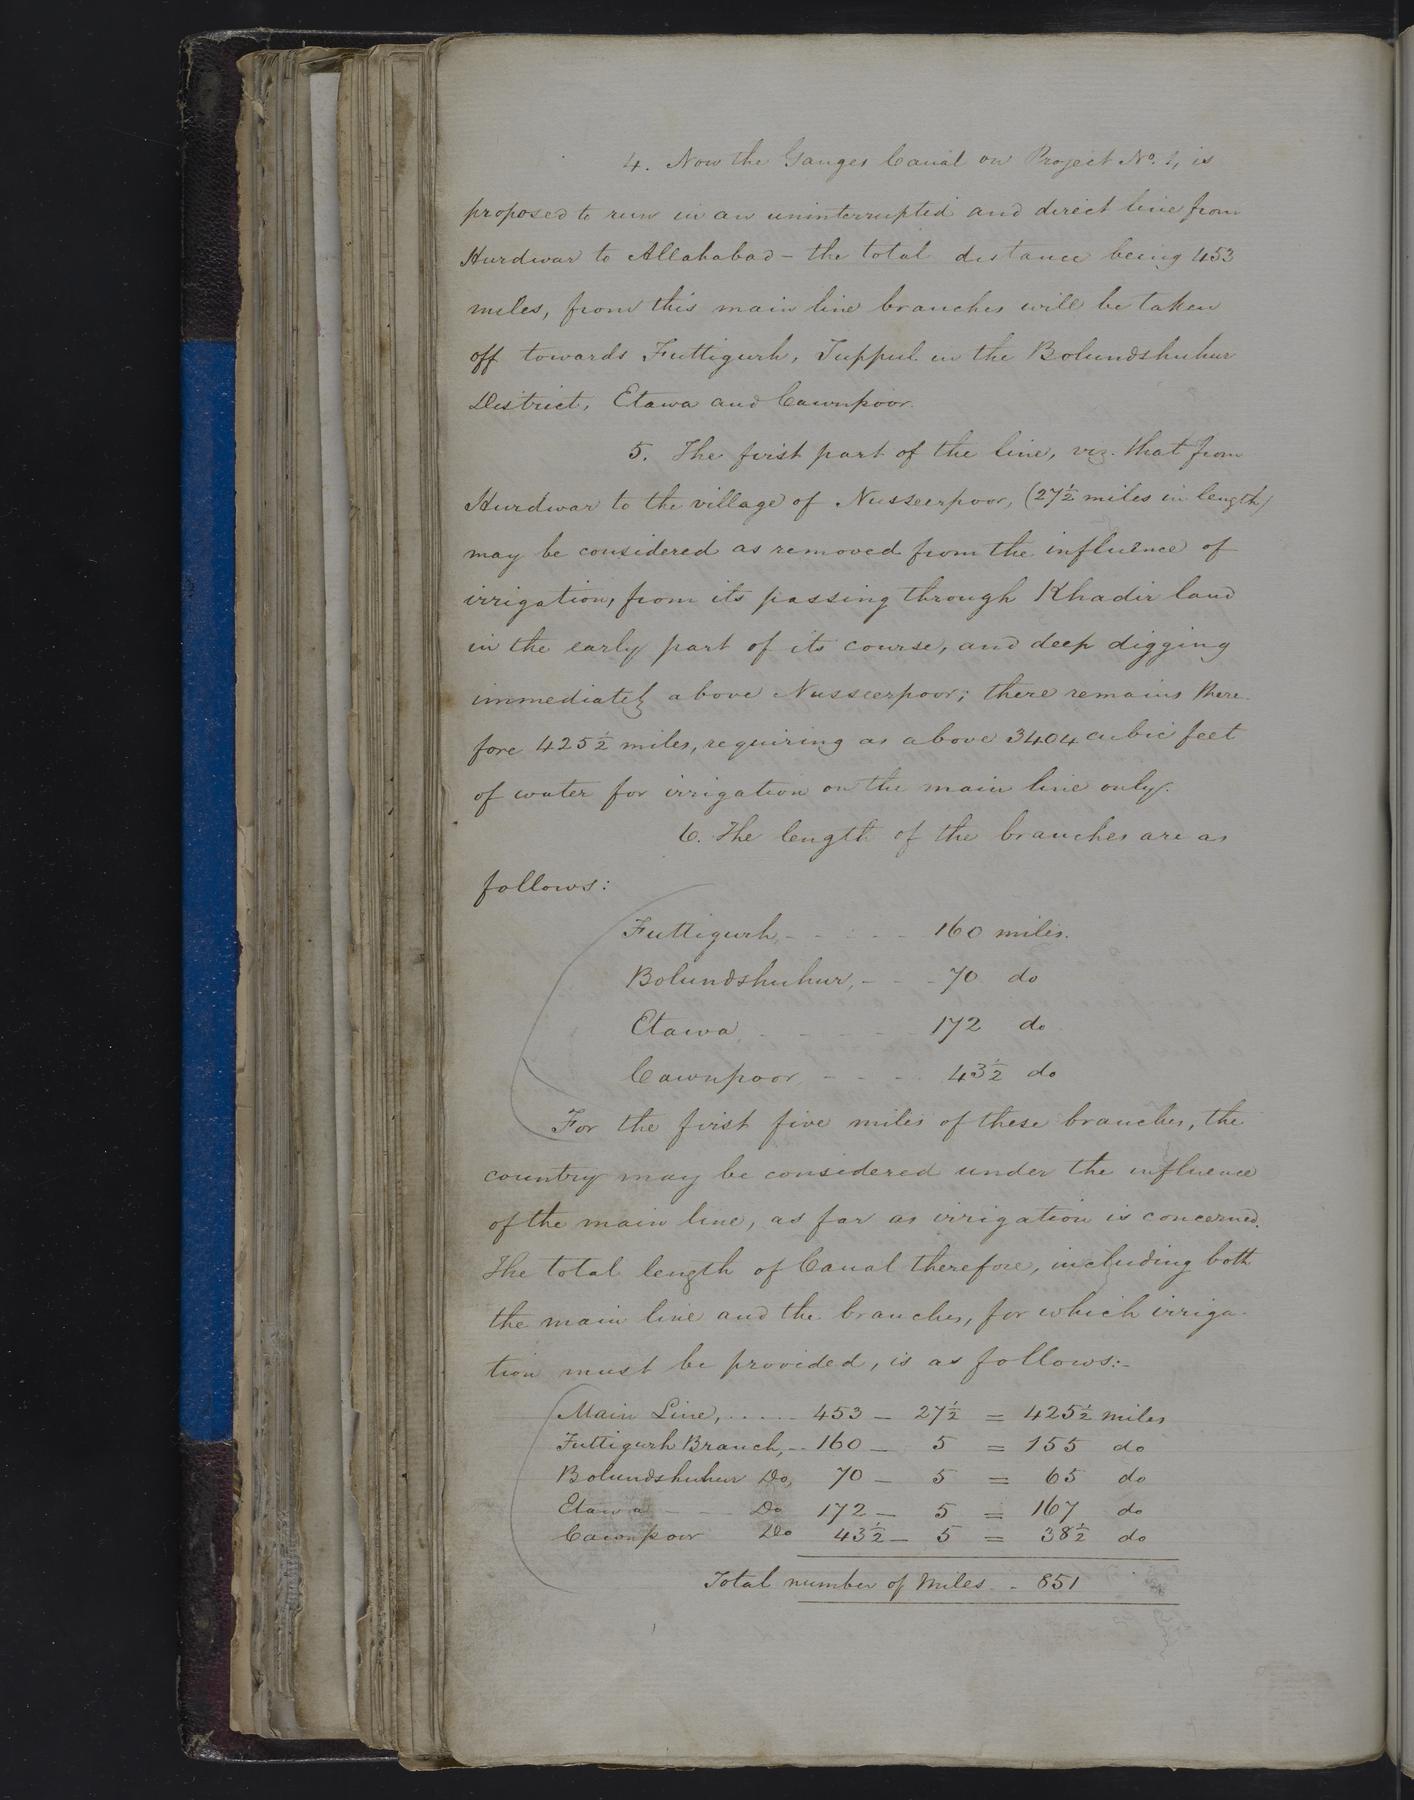 4. Now the Ganges Canal on Project No. 1, is
proposed to run in an uninterrupted and direct line from
Hurdwar to Allahabad – the total distance being 453
miles, from this main line branches will be taken
off towards Futtigurh, Tuppul in the Bolundshuhur
District, Etawa and Cawnpoor.
5. The first part of the line, viz. that from
Hurdwar to the village of Nusseerpoor, (27½ miles in length)
may be considered as removed from the influence of
irrigation, from its passing through Khadir land
in the early part of its course, and deep digging
immediately above Nusseerpoor; there remains there-
fore 425½ miles, requiring as above 3404 cubic feet
of water for irrigation on the main line only.
6. The length of the branches are as
follows:
Futtigurh, - - - - - 160 miles.
Bolundshuhur, - - - 70 do
Etawa - - - - - 172 do
Cawnpoor - - - - 43½ do
For the first five miles of these branches, the
country may be considered under the influence
of the main line, as far as irrigation is concerned.
The total length of Canal therefore, including both
the main line and the branches, for which irriga-
tion must be provided, is as follows:-
Main Line, ..... 453 – 27½ = 425½ miles
Futtigurh Branch, -- 160 – 5 = 155 do
Bolundshuhur Do, 70 – 5 = 65 do
Etawa - - Do 172 – 5 = 167 do
Cawnpoor Do 43½ – 5 = 38½ do
Total number of Miles - - 851